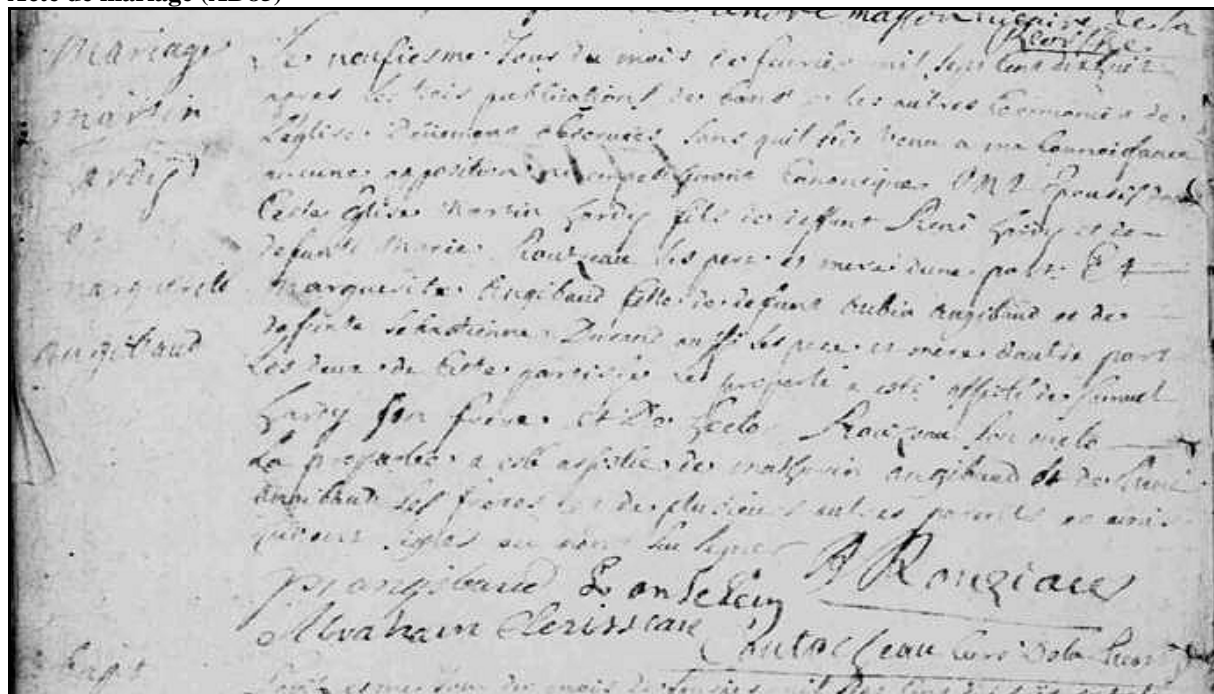 Acte de mariage (AD85)
masson vicaire de la
Mariage
martin
hardy
et
marguerite
angibaud
Le neufiesme Jour du mois de feuvrier mil sept cens dix huit
apres les trois publications des bans et les autres Ceremonies de
L'eglise Deüement obseruées sans quil soit venu a ma Connoissance
aucune opposition ny empeschement Canonique ont Epousé dans
Ceste Eglise Martin hardy fils de deffunt René hardy et de
defunte Marie Rouzeau ses pere et mere dune part Et
Marguerite Angibaud fille de defunt Aubin Angibaud et de
defunte Sebastienne Durand aussi ses pere et mere dautre part
Les deux de Ceste parroisse Le proparlé a esté assisté de Samuel
hardy son frere et De Rouzeau son oncle
La proparlée a esté assistée de mathurin angibaud et de René
angibaud ses freres et de plusieurs autres parents et amis
qui ont signés
angibaud A Rouziau
Abraham Clerisseau Curé de la
bapt
jour du mois de feuvrier mil sept cens dix huit